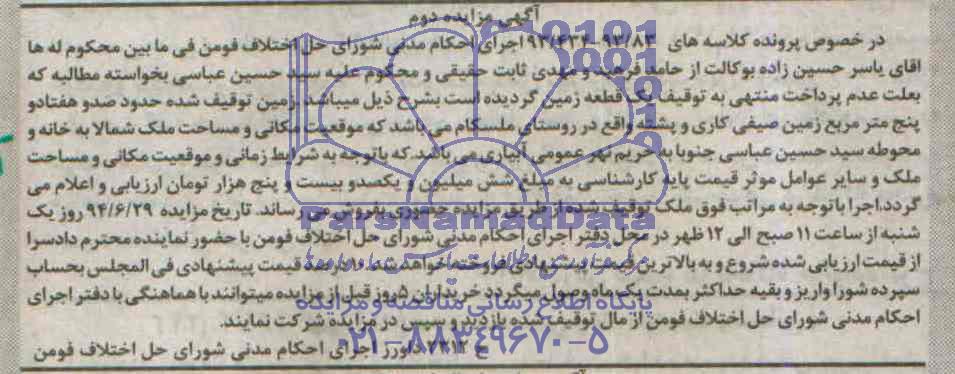 آگهی مزایده دوم
در خصوص پرونده کلاسه های ۹۳/۸۳-۹۲/۴۳۴ اجرای احکام مدنی شورای حل اختلاف فومن فی ما بین محکوم له ها
اقای یاسر حسین زاده بوکالت از حامد فرهید و مهدی ثابت حقیقی و محکوم علیه سید حسین عباسی بخواسته مطالبه که
بعلت عدم پرداخت منتهی به توقیف یک قطعه زمین گردیده است بشرح ذیل میباشد. زمین توقیف شده حدود صدو هفتادو
پنج متر مربع زمین صیفی کاری و پشته واقع در روستای ملسکام می باشد که موقعیت مکانی و مساحت ملک شمالا به خانه و
محوطه سید حسین عباسی جنوبا به حریم نهر عمومی آبیاری می باشد. که باتوجه به شرایط زمانی و موقعیت مکانی و مساحت
ملک و سایر عوامل موثر قیمت پایه کارشناسی به مبلغ شش میلیون و یکصدو بیست و پنج هزار تومان ارزیابی و اعلام می
گردد.اجرا باتوجه به مراتب فوق ملک توقیف شده از طریق مزایده حضوری بفروش می رساند. تاریخ مزایده ۹۴/۶/۲۹ روز یک
شنبه از ساعت ۱۱ صبح الی ۱۲ ظهر در محل دفتر اجرای احکام مدنی شورای حل اختلاف فومن با حضور نماینده محترم دادسرا
از قیمت ارزیابی شده شروع و به بالاترین قیمت پیشنهادی فروخته خواهد شد. ۱۰ درصد قیمت پیشنهادی فی المجلس بحساب
سپرده شورا واریز و بقیه حداکثر بمدت یک ماه وصول میگردد خریداران ۵ روز قبل از مزایده میتوانند با هماهنگی با دفتر اجرای
احکام مدنی شورای حل اختلاف فومن از مال توقیف شده بازدید و سپس در مزایده شرکت نمایند.
ح ۲۳۱۲ داورز اجرای احکام مدنی شورای حل اختلاف فومن
ParsNamadData
پایگاه اطلاع رسانی مناقصه و مزایده
۰۲۱-۸۸۳۴۹۶۷۰-۵